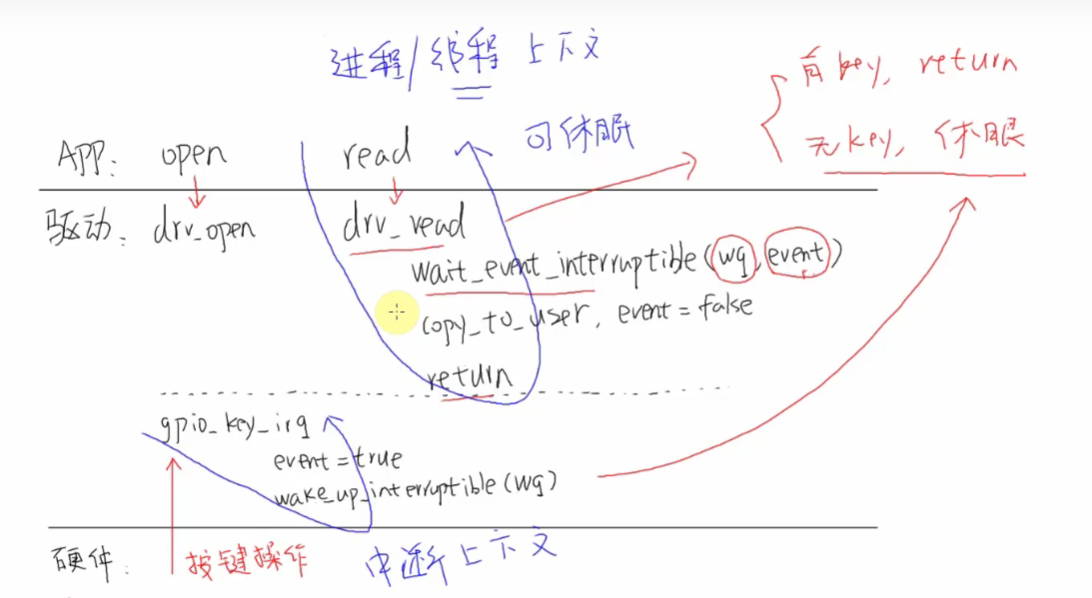 进程/线程 上下文
有key, return
无key, 休眠
可休眠
APP: open read
驱动: drv_open drv_read
wait_event_interruptible(wq, event)
copy_to_user, event = false
return
gpio_key_irq
event = true
wake_up_interruptible(wq)
硬件: 按键操作 中断上下文